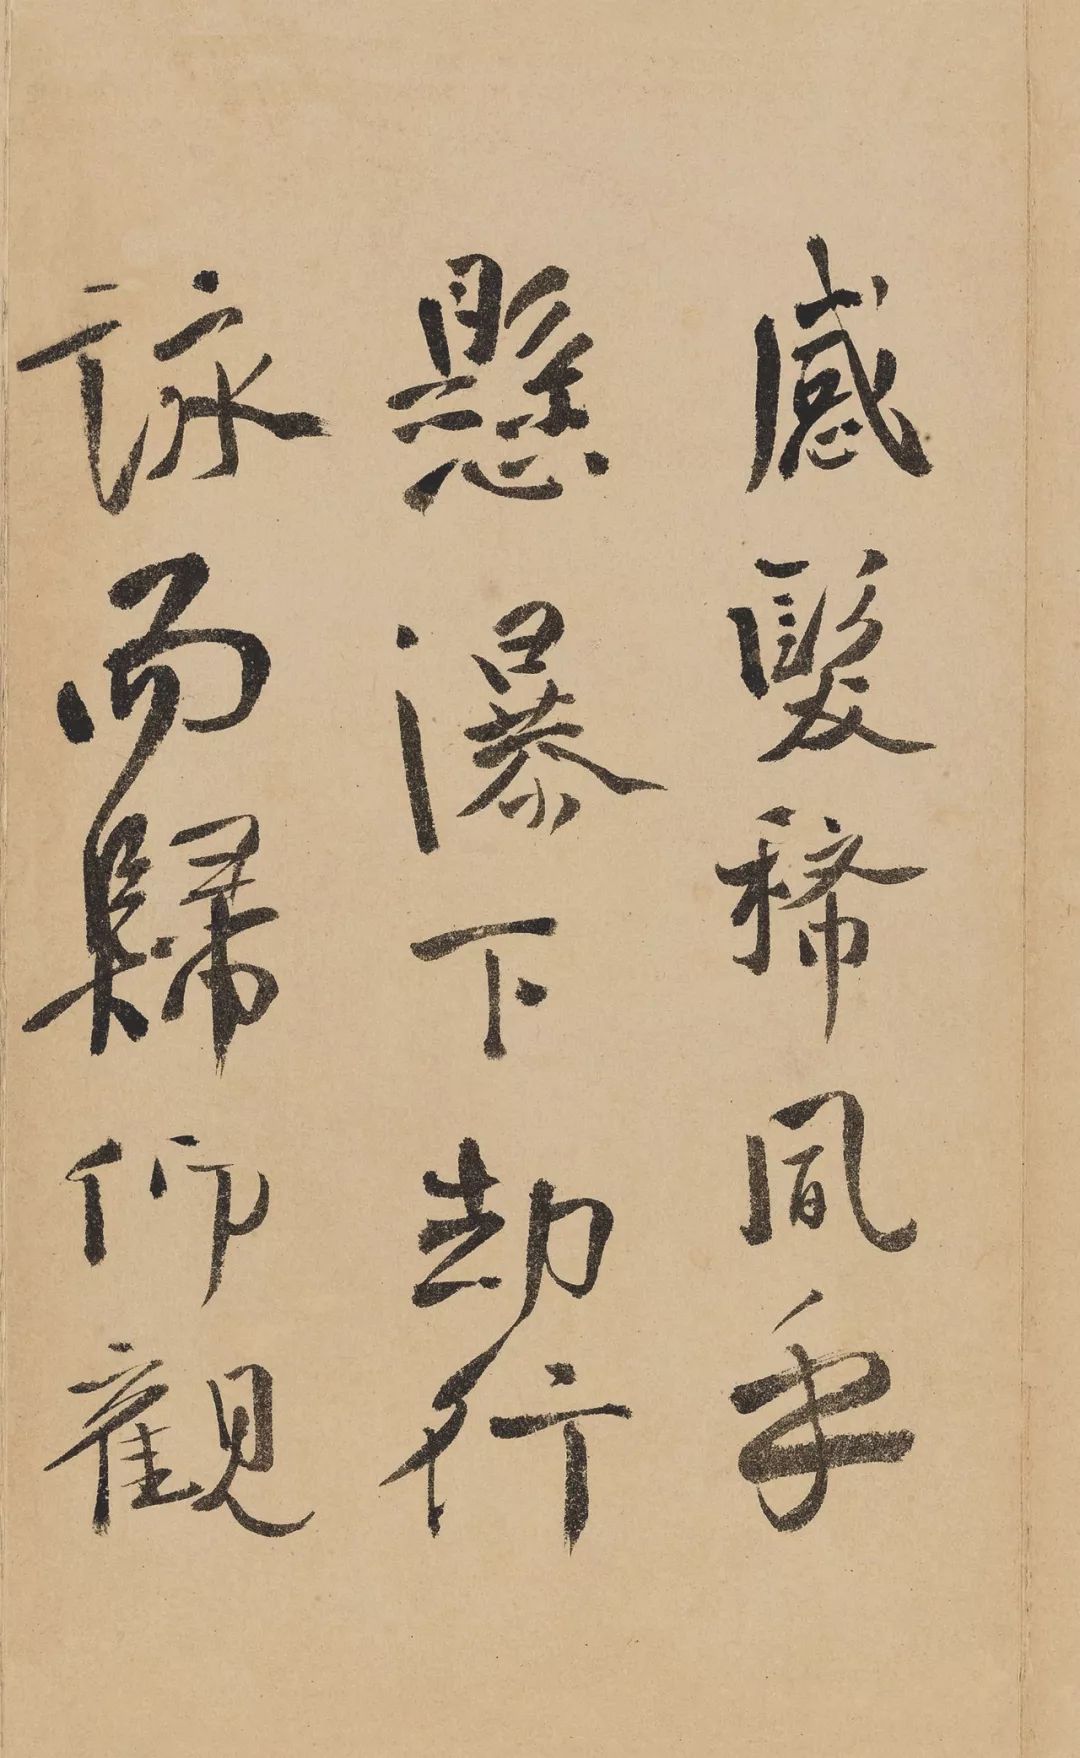 感髮稀風乎
懸瀑下却行
詠而歸仰觀